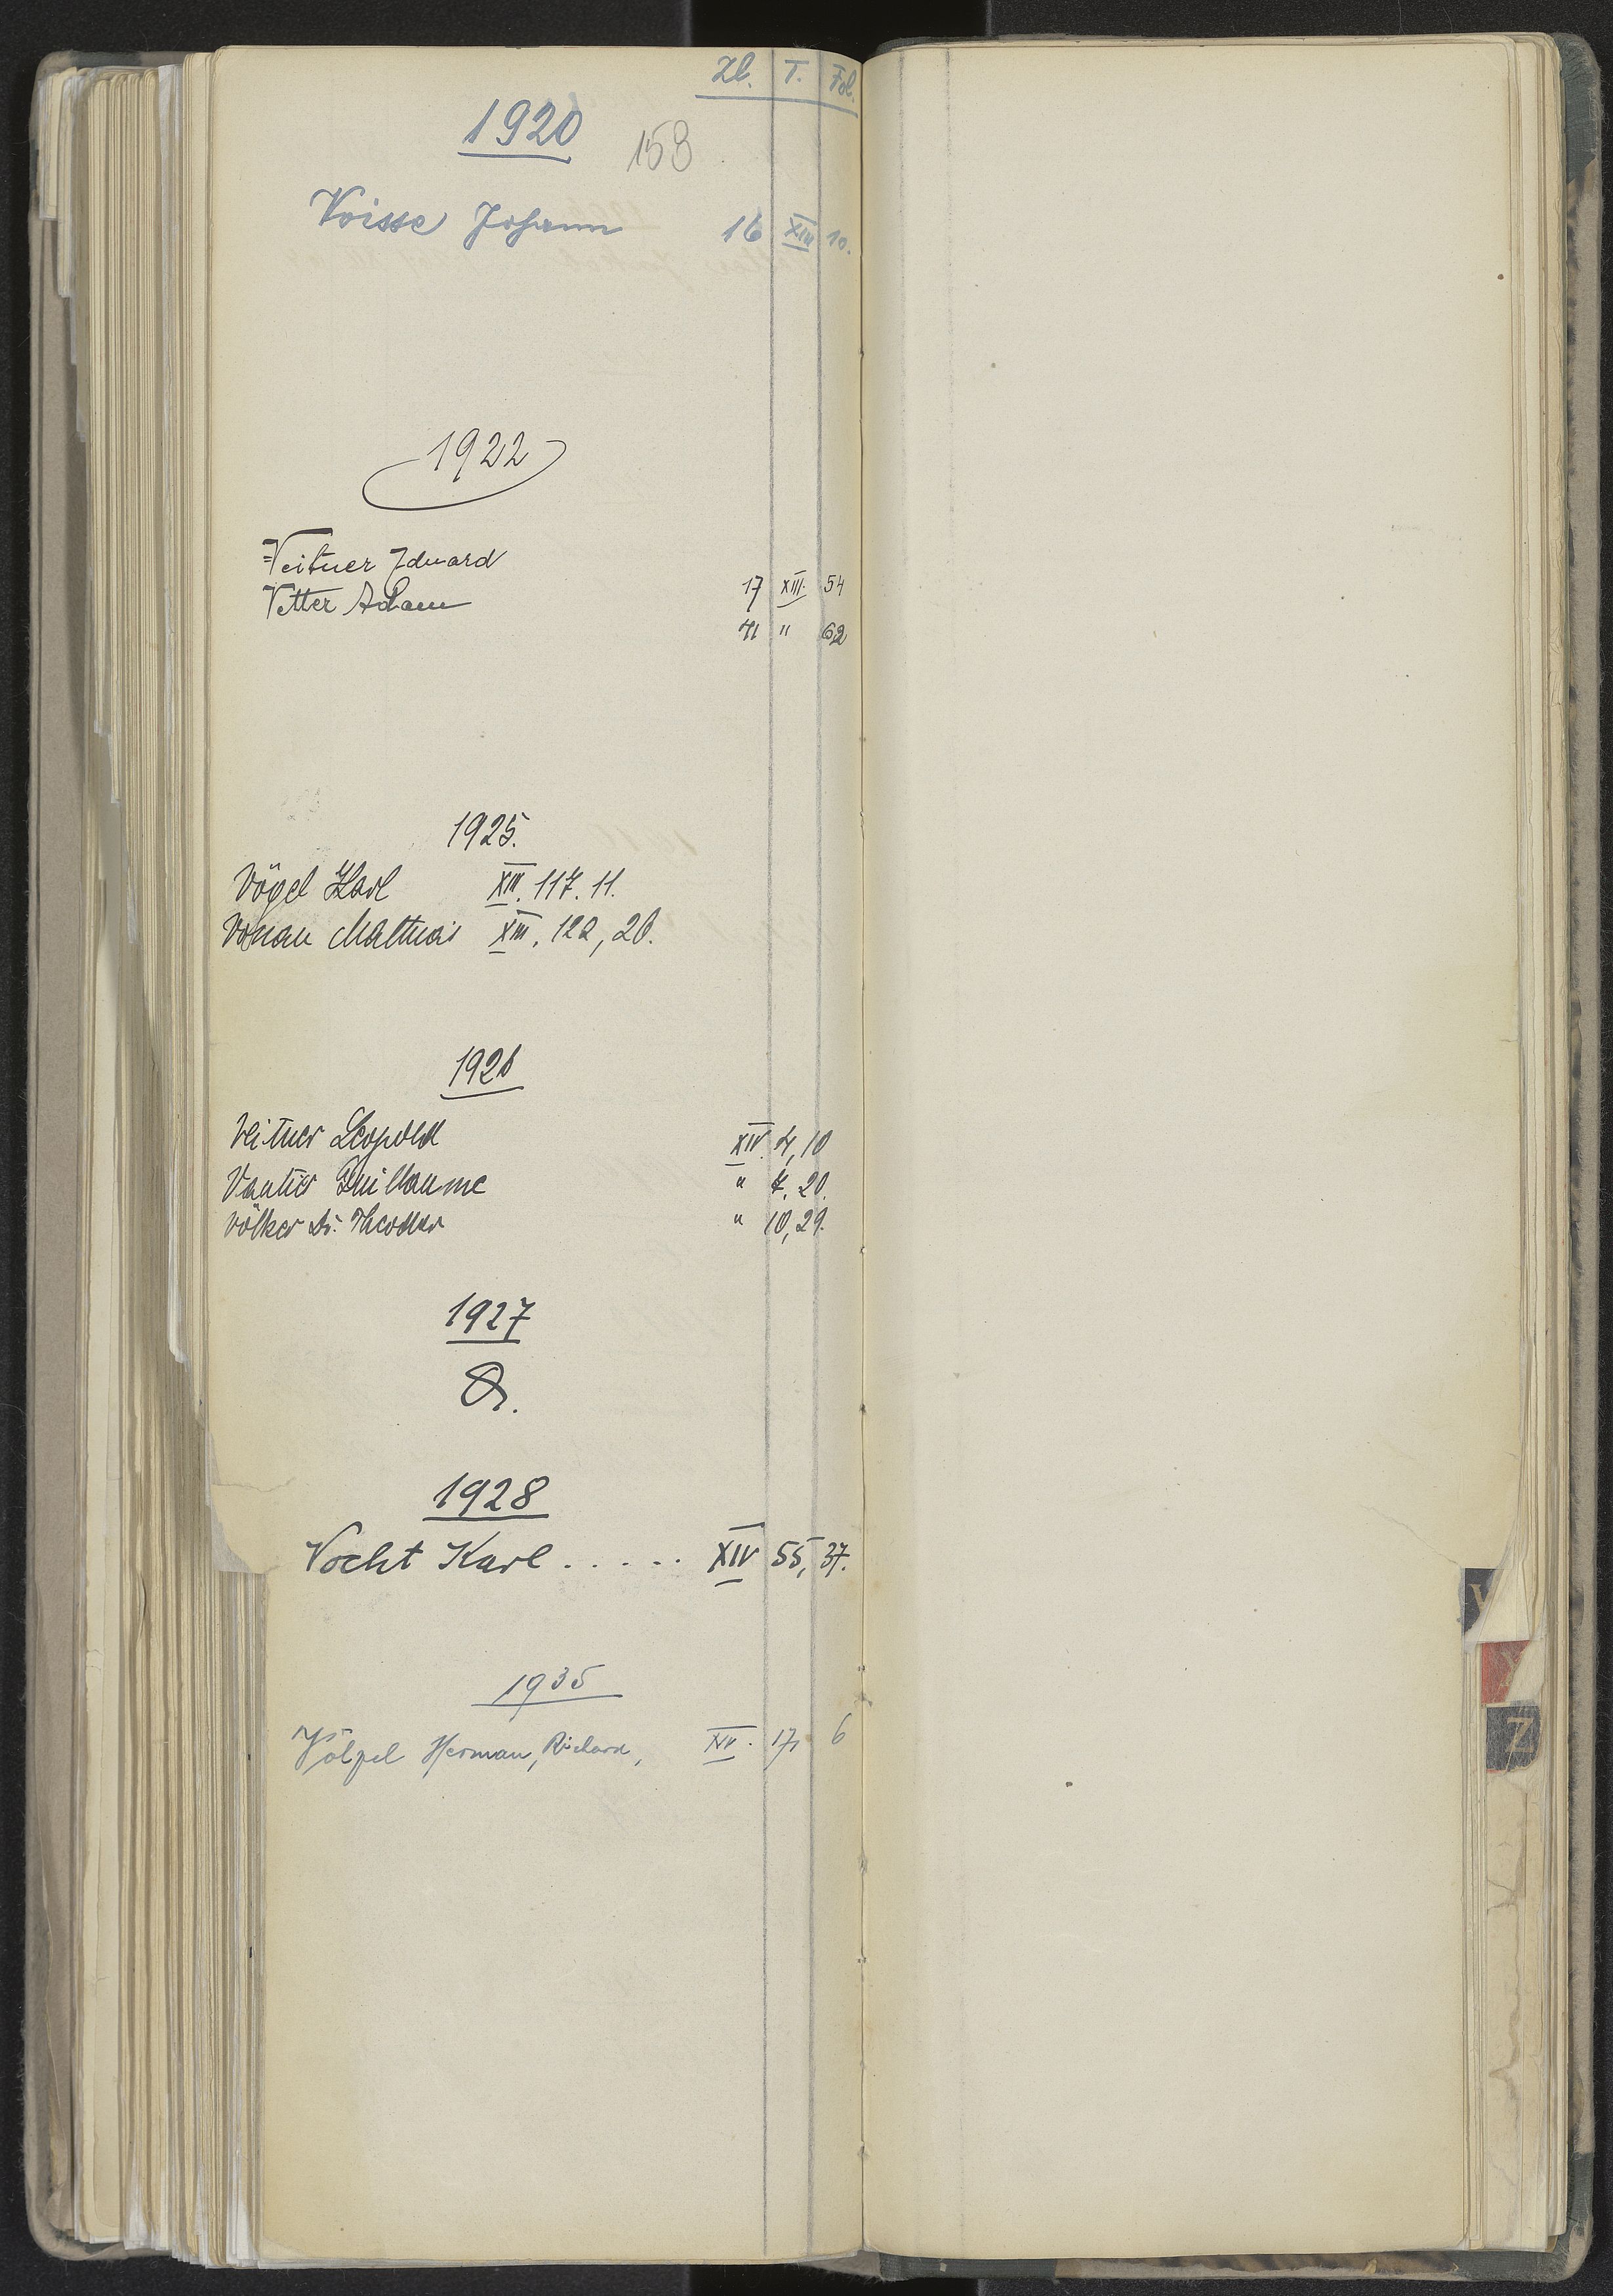 Zl. T. Fol.
1920
158
Voisse Johann 16 XIII 10.
1922
Veitner Eduard 17 XIII. 54
Vetter Adam 41 " 62
1925.
Vögel Karl XIII. 117. 11.
Vonau Mathias XIII. 122, 26.
1926
Veitner Leopold XIV. 4, 10
Vautier Guillaume " 7. 20.
Völker Dr. Theodor " 10, 29.
1927
1928
Vocht Karl . . . . . XIV 55, 37.
1935
Völpel Herman, Richard, XV. 17, 6
Z